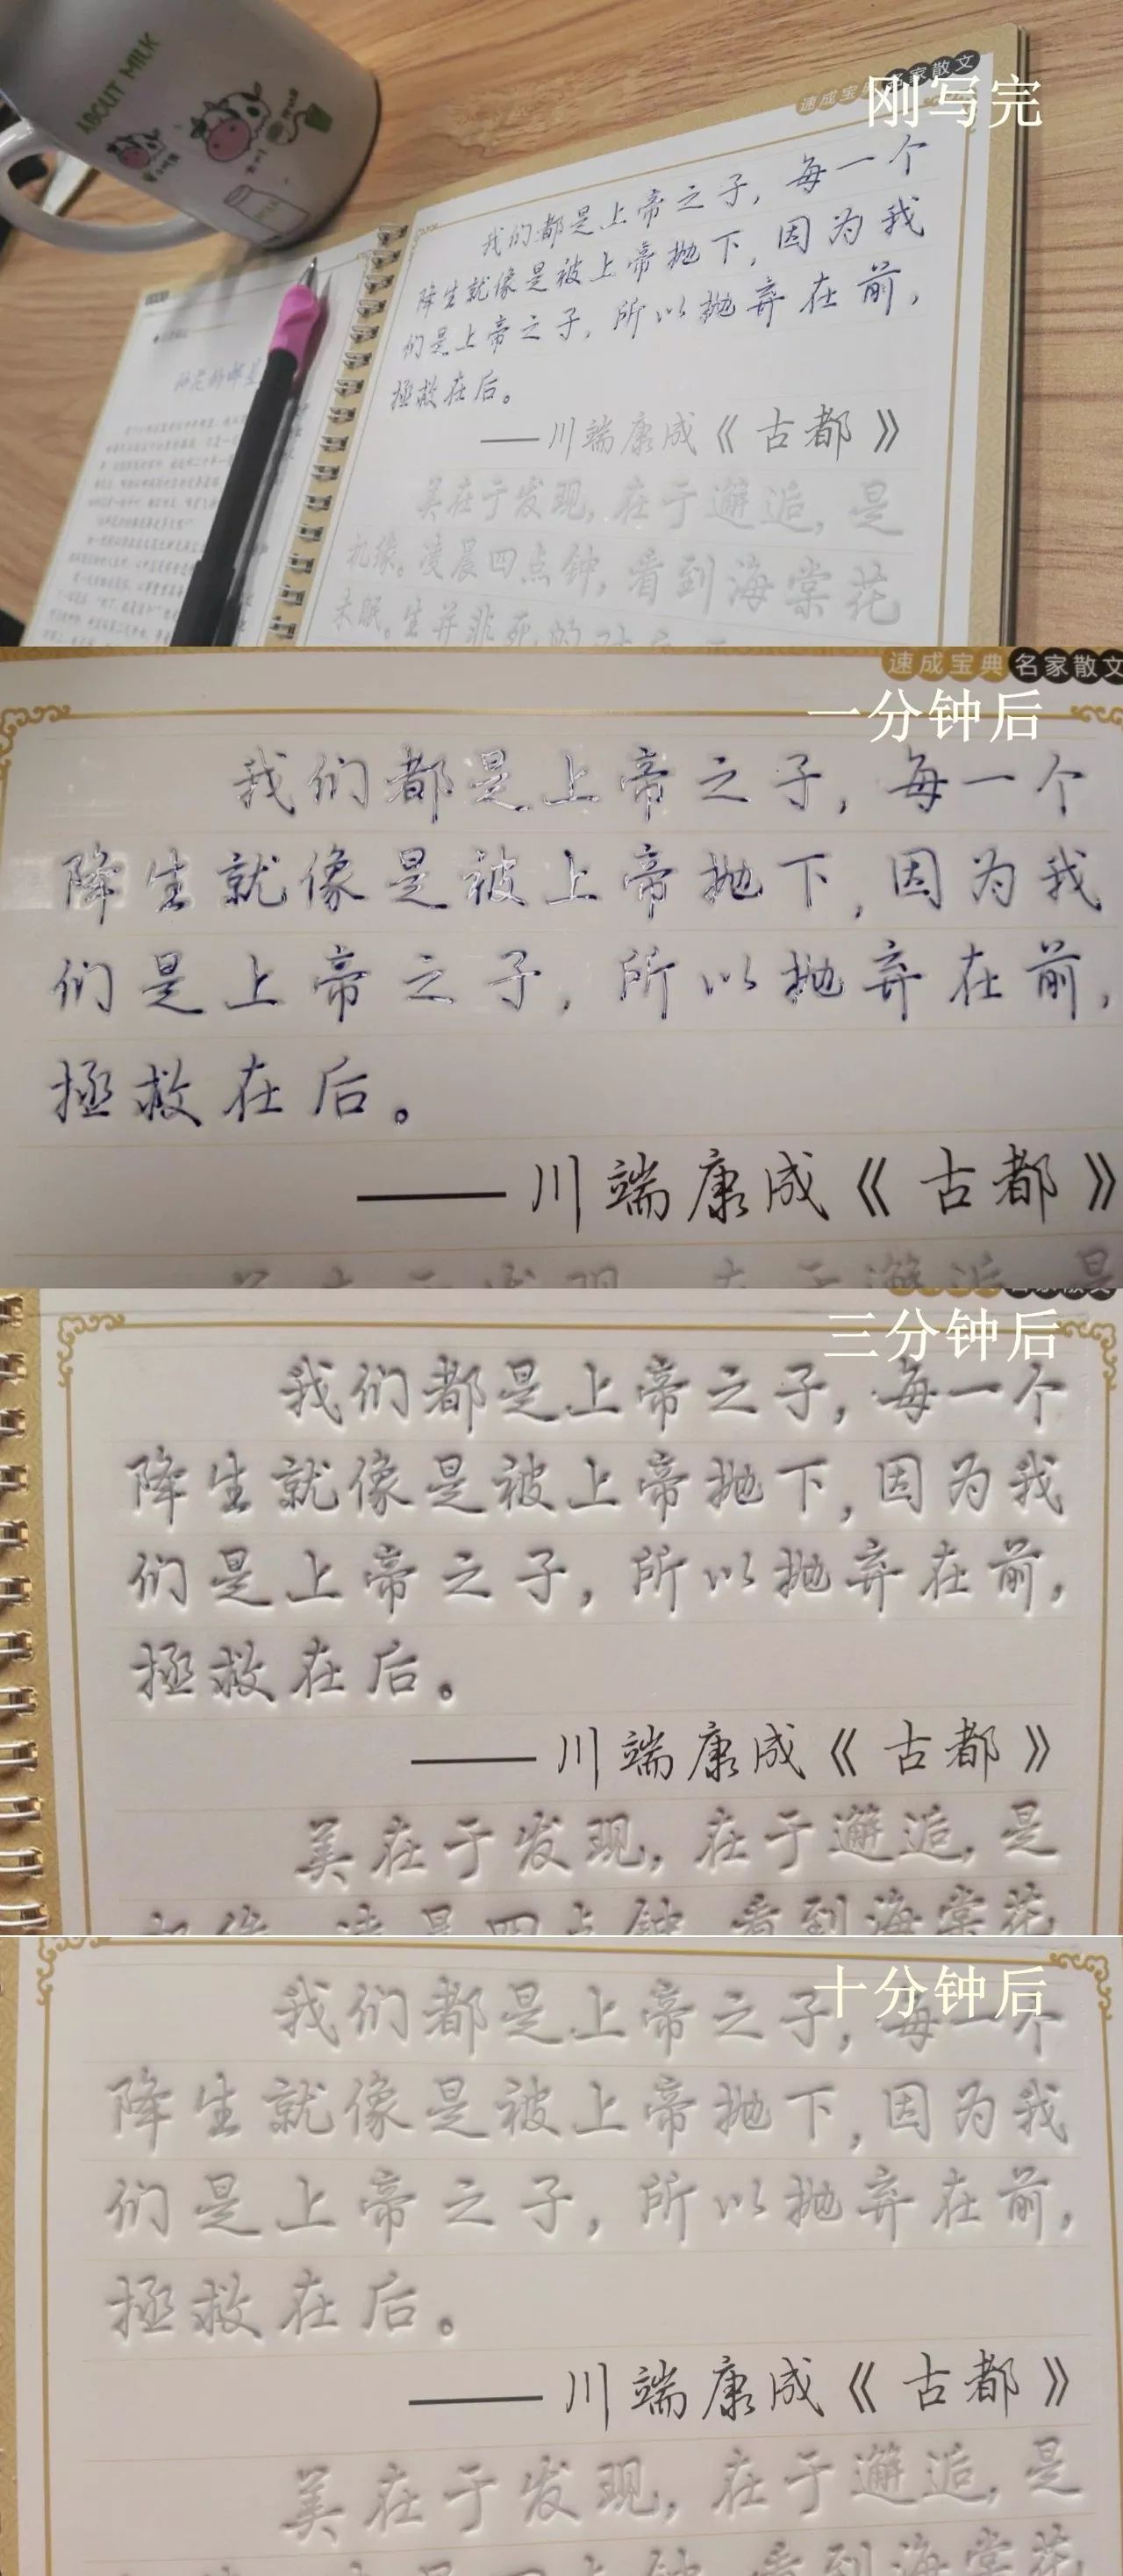 ABOUT MILK
速成宝典 名家散文
刚写完
我们都是上帝之子，每一个
降生就像是被上帝抛下，因为我
们是上帝之子，所以抛弃在前，
拯救在后。
——川端康成《古都》
美在于发现，在于邂逅，是
机缘。凌晨四点钟，看到海棠花
未眠。生并非死的对
速成宝典 名家散文
一分钟后
我们都是上帝之子，每一个
降生就像是被上帝抛下，因为我
们是上帝之子，所以抛弃在前，
拯救在后。
——川端康成《古都》
美在于发现，在于邂逅，是
三分钟后
我们都是上帝之子，每一个
降生就像是被上帝抛下，因为我
们是上帝之子，所以抛弃在前，
拯救在后。
——川端康成《古都》
美在于发现，在于邂逅，是
机缘。凌晨四点钟，看到海棠花
十分钟后
我们都是上帝之子，每一个
降生就像是被上帝抛下，因为我
们是上帝之子，所以抛弃在前，
拯救在后。
——川端康成《古都》
美在于发现，在于邂逅，是
看到海棠花